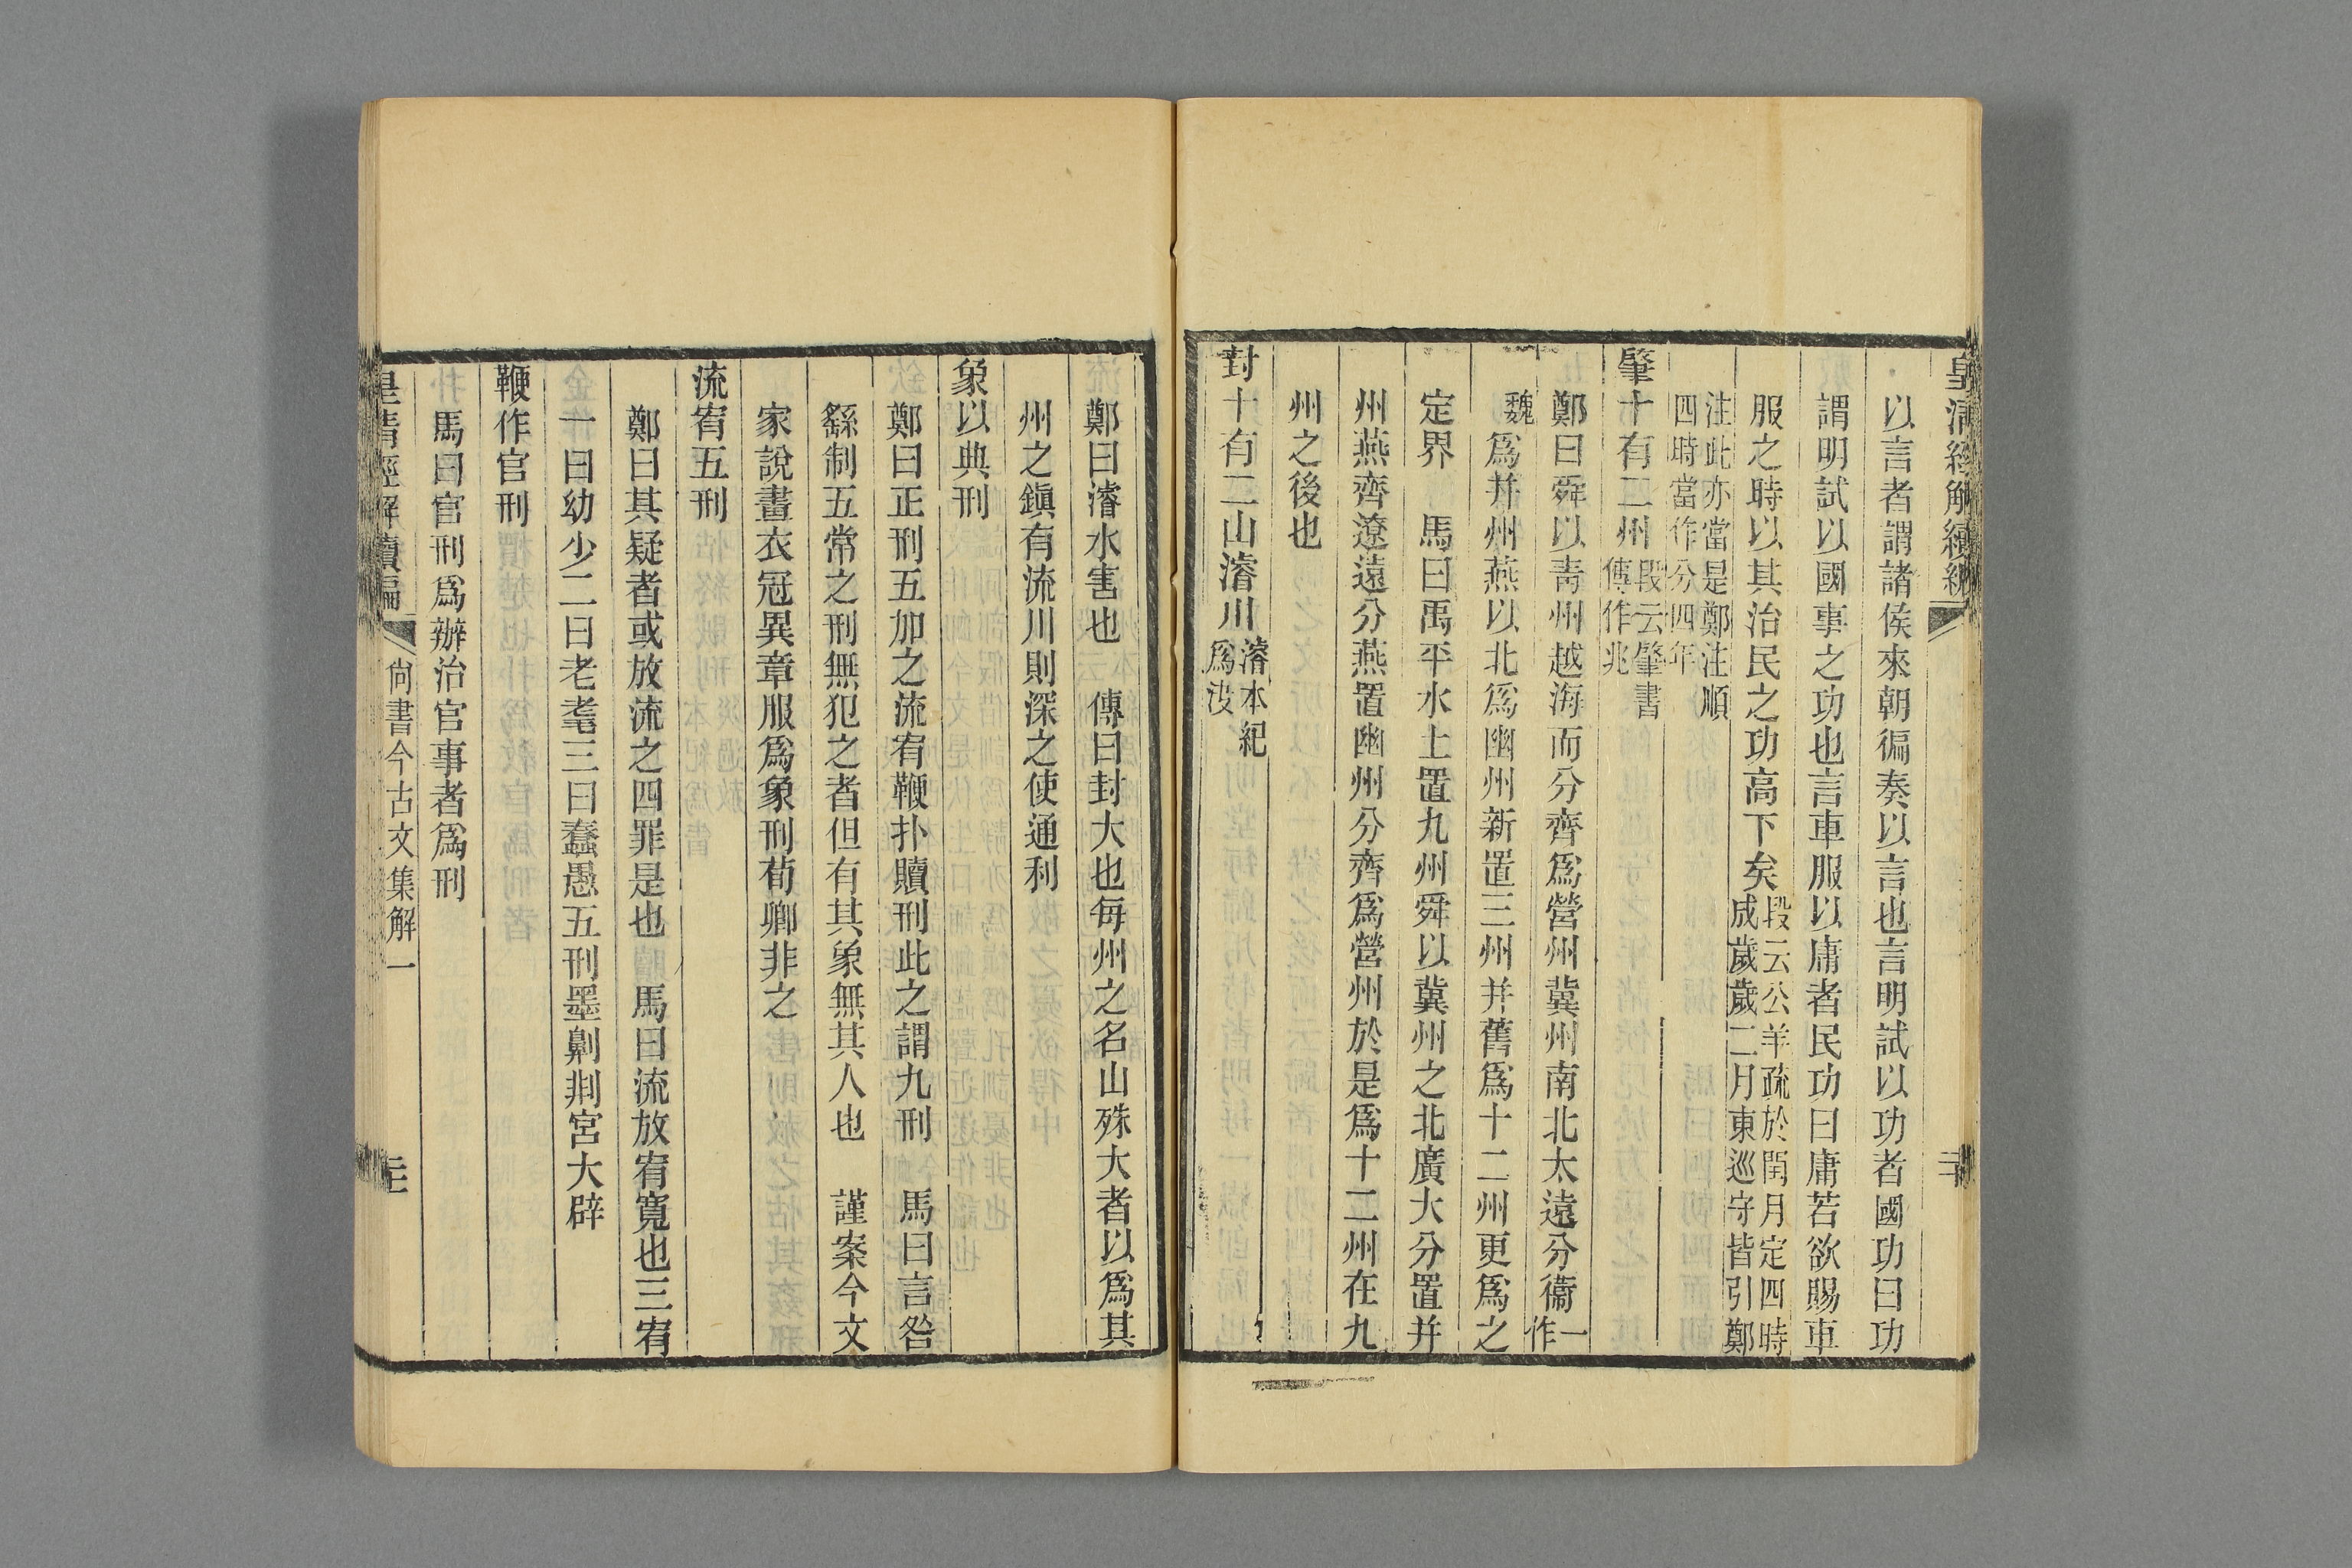 皇清經解續編
以言者謂諸侯來朝徧奏以言也言明試以功者國功曰功
謂明試以國事之功也言車服以庸者民功曰庸若欲賜車
服之時以其治民之功高下矣段云公羊疏於閏月定四時成歲歲二月東巡守皆引鄭
注此亦當是鄭注順四時當作分四年
肇十有二州段云肇書傳作兆
鄭曰舜以靑州越海而分齊爲營州冀州南北太遠分衞一作
魏爲并州燕以北爲幽州新置三州并舊爲十二州更爲之
定界　馬曰禹平水土置九州舜以冀州之北廣大分置并
州燕齊遼遠分燕置幽州分齊爲營州於是爲十二州在九
州之後也
封十有二山濬川濬本紀爲決
鄭曰濬水害也　傳曰封大也每州之名山殊大者以爲其
州之鎭有流川則深之使通利
象以典刑
鄭曰正刑五加之流宥鞭扑贖刑此之謂九刑　馬曰言咎
繇制五常之刑無犯之者但有其象無其人也　謹案今文
家說畫衣冠異章服爲象刑荀卿非之
流宥五刑
鄭曰其疑者或放流之四罪是也　馬曰流放宥寬也三宥
一曰幼少二曰老耄三曰蠢愚五刑墨劓剕宮大辟
鞭作官刑
馬曰官刑爲辦治官事者爲刑
皇清經解續編　尚書今古文集解一